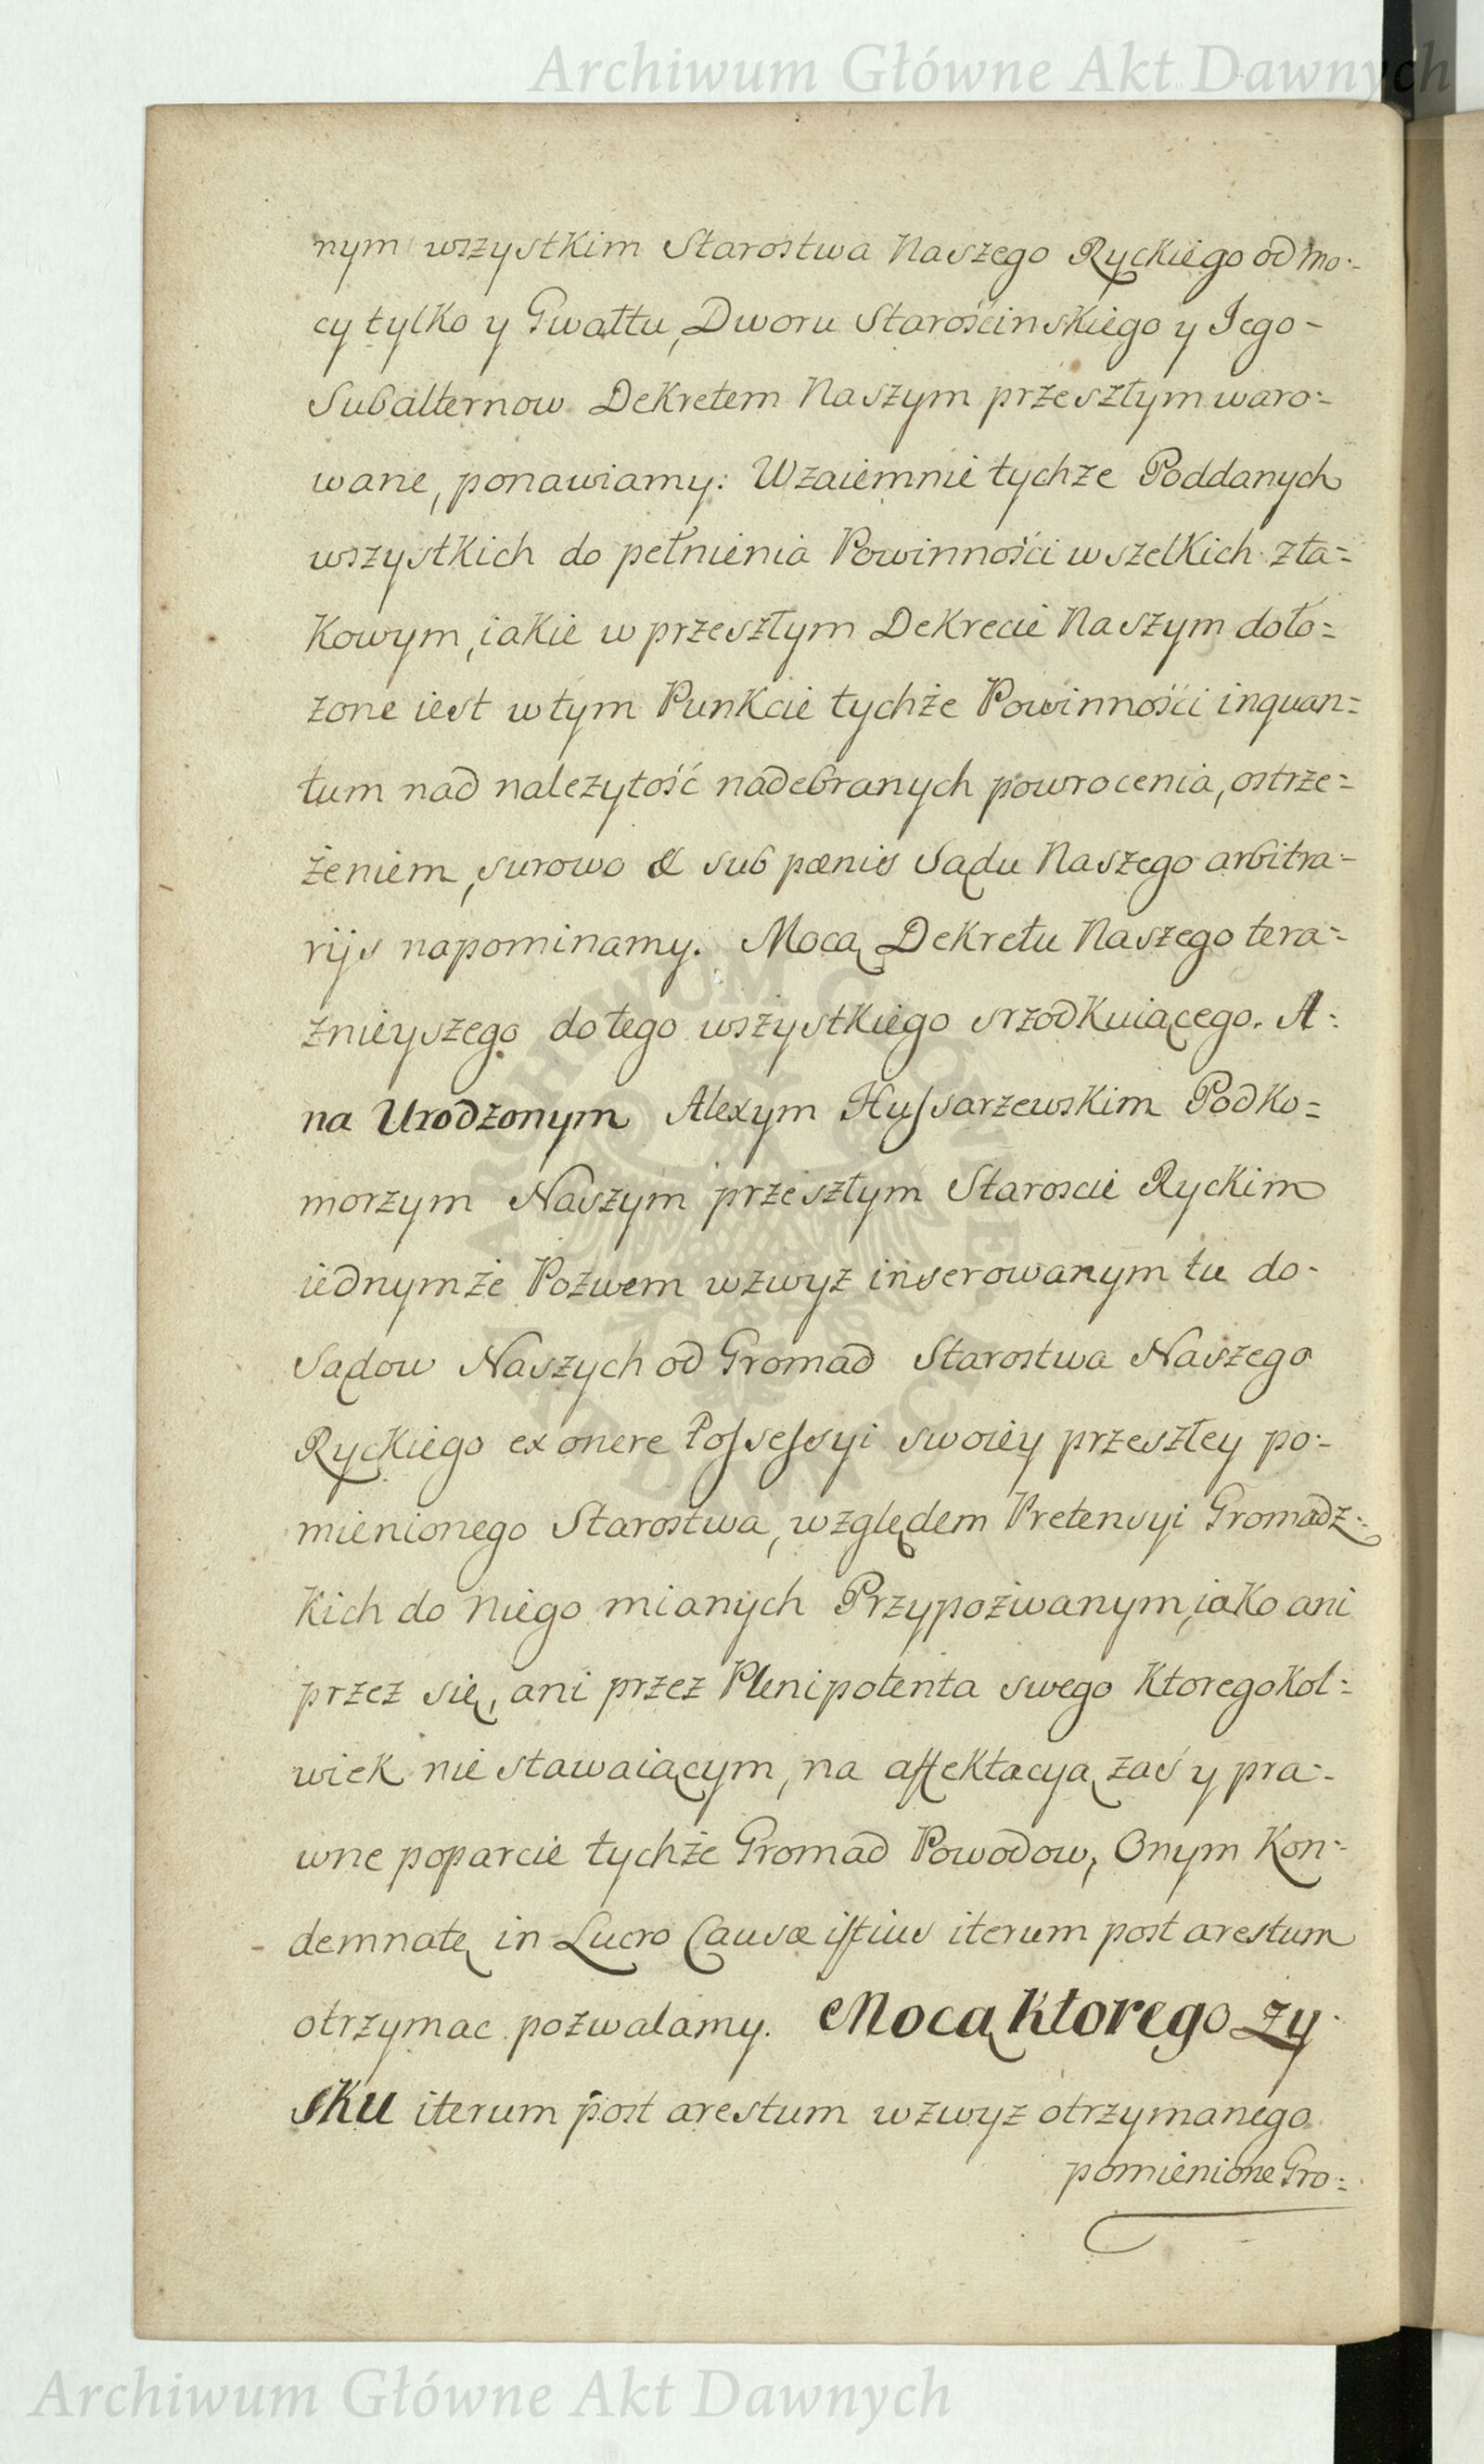 Archiwum Główne Akt Dawnych
nym wszystkim Starostwa Naszego Ryckiego od mo-
cy tylko y Gwałtu, Dworu Starościnskiego y Jego-
Subalternow Dekretem Naszym przeszłym waro-
wane, ponawiamy: Wzaiemnie tychże Poddanych
wszystkich do pełnienia Powinności wszelkich zta=
kowym, iakie w przeszłym Dekrecie Naszym doło=
żone iest w tym Punkcie tychże Powinności inquan=
tum nad należytość nadebranych powrocenia, ostrze=
żeniem, surowo & sub pœnis Sądu Naszego arbitra-
rijs napominamy. Mocą Dekretu Naszego tera=
znieyszego do tego wszystkiego srzodkuiącego. A:
na Urodzonym Alexym Hussarzewskim Podko=
morzym Naszym przeszłym Staroscie Ryckim
iednymże Pozwem wzwyz inserowanym tu do-
Sądow Naszych od Gromad Starostwa Naszego
Ryckiego ex onere Possessyi swoiey przeszłey po-
mienionego Starostwa, względem Pretensyi Gromadz-
kich do Niego mianych Przypozwanym, iako ani
przez się, ani przez Plenipotenta swego ktoregokol=
wiek nie stawaiącym, na affektacyą zaś y pra-
wne poparcie tychże Gromad Powodow, Onym Kon-
demnatę in Lucro Causæ istius iterum post arestum
otrzymac pozwalamy. Mocą ktorego zy-
sku iterum post arestum wzwyz otrzymanego
pomienione Gro=
Archiwum Główne Akt Dawnych